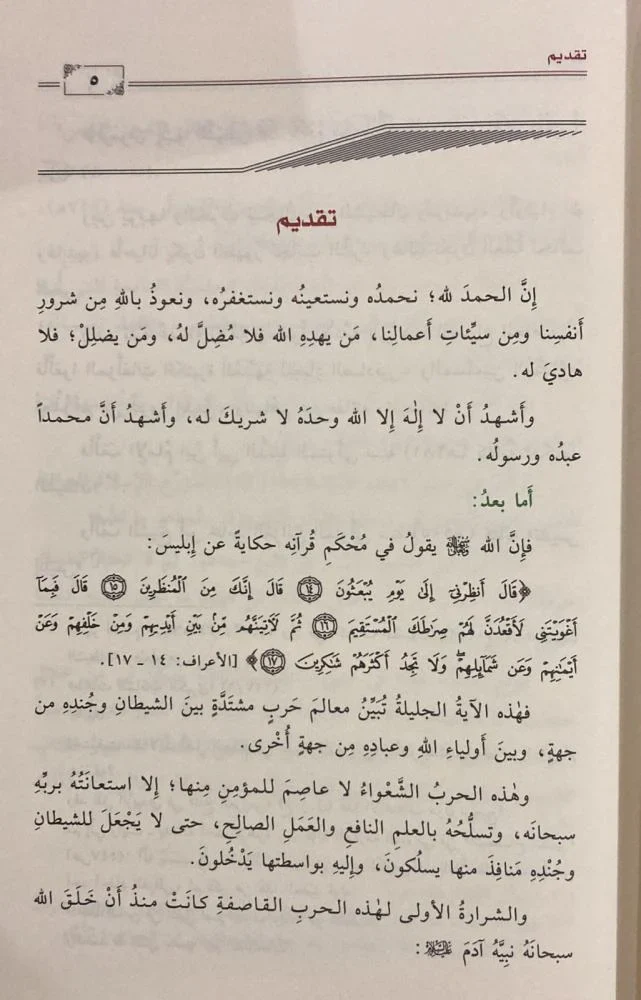 تقديم
٥
تقديم
إنَّ الحمدَ لله؛ نحمدُه ونستعينُه ونستغفرُه، ونعوذُ باللهِ مِن شرورِ
أَنفسِنا ومِن سيِّئاتِ أَعمالِنا، مَن يهدِهِ الله فلا مُضِلَّ لهُ، ومَن يضلِلْ؛ فلا
هاديَ له.
وأَشهدُ أَنْ لا إِلٰهَ إلا الله وحدَهُ لا شريكَ له، وأَشهدُ أَنَّ محمداً
عبدُه ورسولُه.
أَما بعدُ:
فإِنَّ الله ﷻ يقولُ في مُحْكَمِ قُرآنِه حكايةً عن إِبليسَ:
﴿قَالَ أَنظِرْنِىٓ إِلَىٰ يَوْمِ يُبْعَثُونَ ﴿١٤﴾ قَالَ إِنَّكَ مِنَ ٱلْمُنظَرِينَ ﴿١٥﴾ قَالَ فَبِمَآ
أَغْوَيْتَنِى لَأَقْعُدَنَّ لَهُمْ صِرَٰطَكَ ٱلْمُسْتَقِيمَ ﴿١٦﴾ ثُمَّ لَـَٔاتِيَنَّهُم مِّنۢ بَيْنِ أَيْدِيهِمْ وَمِنْ خَلْفِهِمْ وَعَنْ
أَيْمَٰنِهِمْ وَعَن شَمَآئِلِهِمْ ۖ وَلَا تَجِدُ أَكْثَرَهُمْ شَٰكِرِينَ ﴿١٧﴾﴾ [الأعراف: ١٤ - ١٧].
فهٰذه الآيةُ الجليلةُ تُبَيِّنُ معالمَ حَربٍ مشتدَّةٍ بينَ الشيطانِ وجُندِهِ من
جهةٍ، وبينَ أَولياءِ اللهِ وعبادِهِ مِن جهةٍ أُخْرى.
وهٰذه الحربُ الشَّعْواءُ لا عاصِمَ للمؤمِنِ مِنها؛ إلا استعانَتُهُ بربِّهِ
سبحانَه، وتسلُّحُهُ بالعلمِ النافعِ والعَمَلِ الصالِحِ، حتى لا يَجْعَلَ للشيطانِ
وجُنْدِهِ مَنافِذَ منها يسلُكونَ، وإليهِ بواسطتِها يَدْخُلونَ.
والشرارةُ الأولى لهٰذه الحربِ القاصفةِ كانَتْ منذُ أَنْ خَلَقَ الله
سبحانَهُ نبيَّهُ آدَمَ عليه السلام: